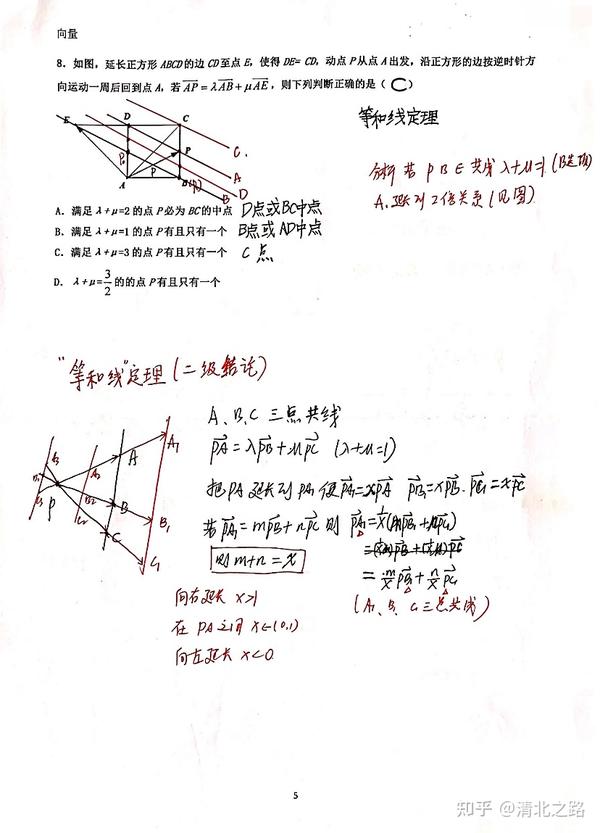 向量
8. 如图，延长正方形 ABCD 的边 CD 至点 E，使得 DE= CD，动点 P 从点 A 出发，沿正方形的边按逆时针方
向运动一周后回到点 A，若 \overrightarrow{AP}=λ\overrightarrow{AB}+μ\overrightarrow{AE}，则下列判断正确的是（ C ）
E D C
P₀ P P
A B(P₁)
C.
A
D
B
等和线定理
分析 若 P B E 共线 λ+μ=1 (B选项)
A. 延长到2倍关系 (见图)
A. 满足 λ+μ=2 的点 P 必为 BC 的中点 D点或BC中点
B. 满足 λ+μ=1 的点 P 有且只有一个 B点或AD中点
C. 满足 λ+μ=3 的点 P 有且只有一个 C点
D. λ+μ=3/2 的的点 P 有且只有一个
"等和线"定理 (二级结论)
A、B、C 三点共线
\overrightarrow{PA}=λ\overrightarrow{PB}+μ\overrightarrow{PC} (λ+μ=1)
把PA延长到PA₁ 使\overrightarrow{PA₁}=x\overrightarrow{PA} \overrightarrow{PB₁}=x\overrightarrow{PB}. \overrightarrow{PC₁}=x\overrightarrow{PC}
若\overrightarrow{PA₁}=m\overrightarrow{PB}+n\overrightarrow{PC} 则 \overrightarrow{PA₁}=
则 m+n=x
=m/x\overrightarrow{PB₁}+n/x\overrightarrow{PC₁}
(A₁、B₁、C₁三点共线)
A₁
A
B
B₁
C
C₁
P
向右延长 x>1
在PA之间 x∈(0,1)
向左延长 x<0
5
知乎 @清北之路